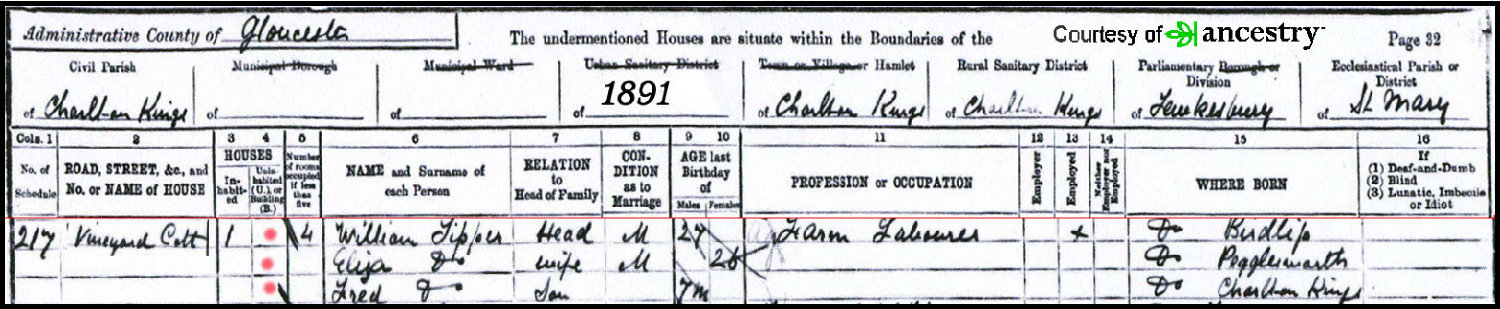 Administrative County of Gloucester The undermentioned Houses are situate within the Boundaries of the Courtesy of ancestry Page 32
Civil Parish Municipal Borough Municipal Ward Urban Sanitary District Town or Village or Hamlet Rural Sanitary District Parliamentary Borough or Division Ecclesiastical Parish or District
of Charlton Kings of of of 1891 of Charlton Kings of Charlton Kings of Tewkesbury of St Mary
Cols. 1 2 3 4 5 6 7 8 9 10 11 12 13 14 15 16
No. of Schedule ROAD, STREET, &c., and No. or NAME of HOUSE HOUSES Inhabited Uninhabited (U.), or Building (B.) Number of rooms occupied if less than five NAME and Surname of each Person RELATION to Head of Family CONDITION as to Marriage AGE last Birthday of Males Females PROFESSION or OCCUPATION Employer Employed Neither Employer nor Employed WHERE BORN If (1) Deaf-and-Dumb (2) Blind (3) Lunatic, Imbecile or Idiot
217 Vineyard Cott 1 4 William Tipper Head M 27 Farm Labourer x Do Birdlip
Eliza Do wife M Do Pegglesworth
Fred Do Son 7m Do Charlton Kings